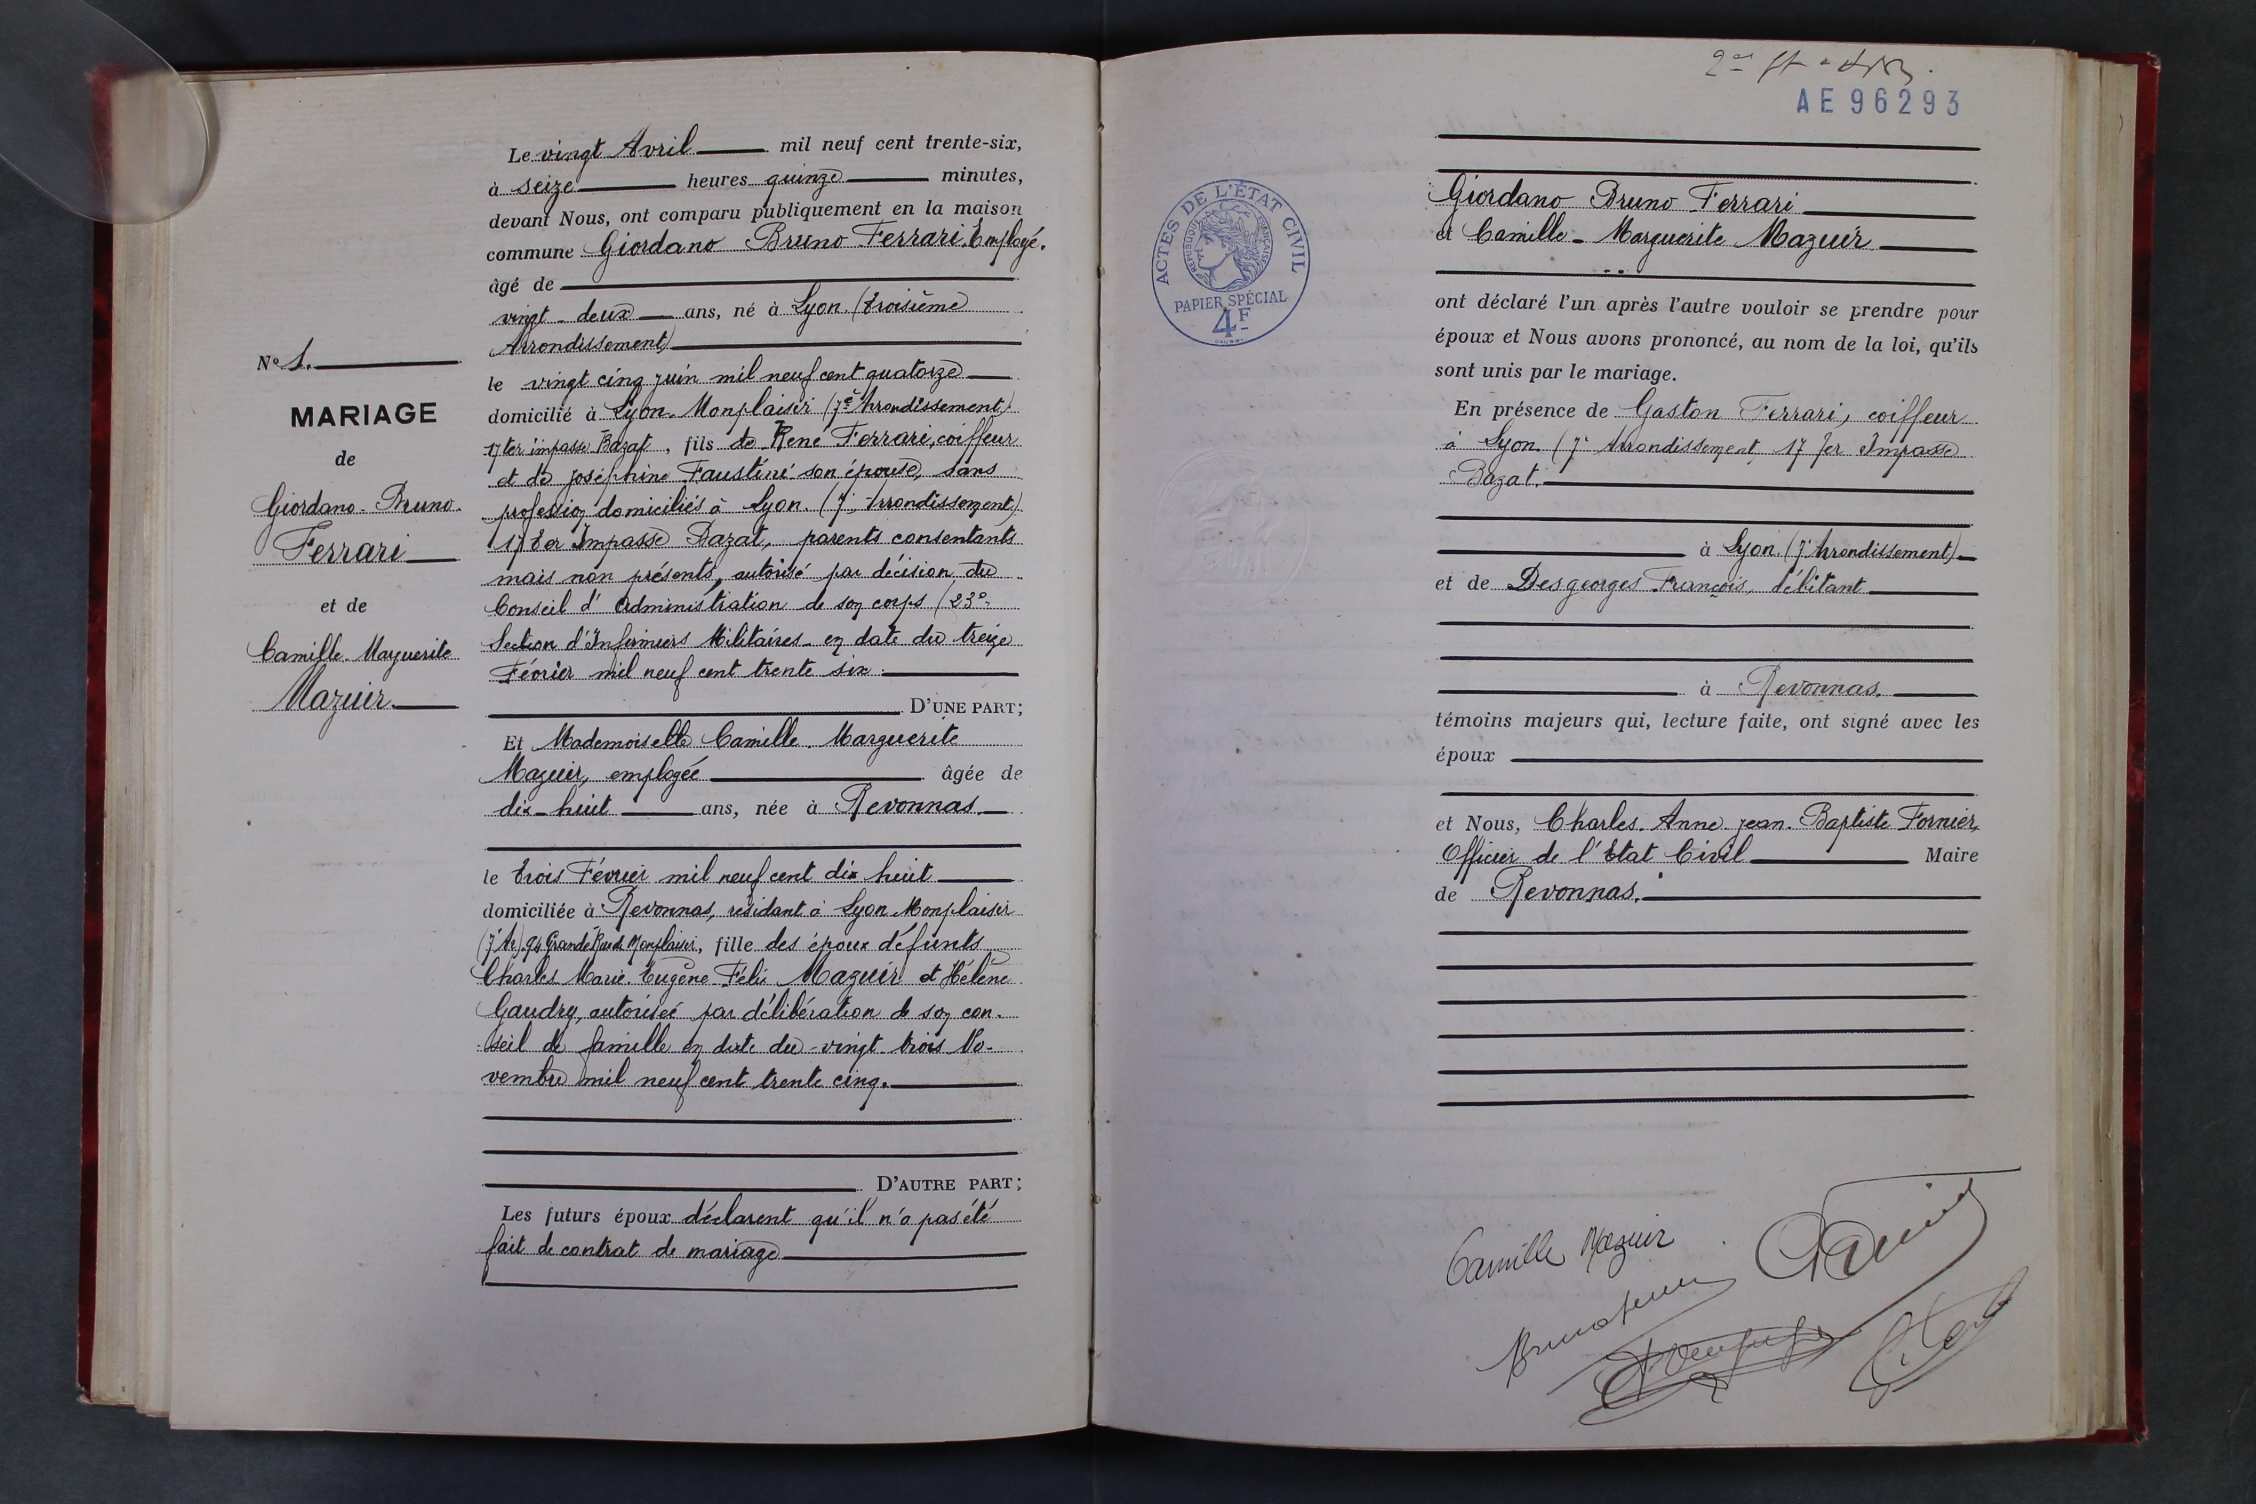 Le vingt Avril mil neuf cent trente-six,
à seize heures quinze minutes,
devant Nous, ont comparu publiquement en la maison
commune Giordano Bruno Ferrari, Employé.
âgé de
vingt-deux ans, né à Lyon. (troisième
Arrondissement)
le vingt cinq juin mil neuf cent quatorze
domicilié à Lyon-Monplaisir (7e Arrondissement)
17 ter impasse Bazat, fils de René Ferrari, coiffeur
et de Joséphine Faustine son épouse, sans
profession domiciliés à Lyon. (7e Arrondissement)
17 ter Impasse Bazat, parents consentants
mais non présents, autorisé par décision du
Conseil d'administration de son corps (23e
Section d'Infirmiers Militaires en date du treize
Février mil neuf cent trente six.
D'UNE PART;
Et Mademoiselle Camille Marguerite
Mazuir, employée âgée de
dix-huit ans, née à Revonnas.
le trois Février mil neuf cent dix huit
domiciliée à Revonnas, résidant à Lyon Monplaisir
(7e Ar) 94 Grande Rue de Monplaisir, fille des époux défunts
Charles Marie Eugène Félix Mazuir et Hélène
Gaudry, autorisée par délibération de son con-
seil de famille en date du vingt trois No-
vembre mil neuf cent trente cinq.
D'AUTRE PART;
Les futurs époux déclarent qu'il n'a pas été
fait de contrat de mariage
No 1.
MARIAGE
de
Giordano-Bruno
Ferrari
et de
Camille Marguerite
Mazuir
AE 96293
ACTES DE L'ÉTAT CIVIL
RÉPUBLIQUE FRANÇAISE
PAPIER SPÉCIAL
4F
Giordano Bruno Ferrari
et Camille-Marguerite Mazuir
ont déclaré l'un après l'autre vouloir se prendre pour
époux et Nous avons prononcé, au nom de la loi, qu'ils
sont unis par le mariage.
En présence de Gaston Ferrari, coiffeur
à Lyon (7e Arrondissement, 17 Ter Impasse
Bazat.
à Lyon. (7e Arrondissement)
et de Desgeorges François, débitant
à Revonnas.
témoins majeurs qui, lecture faite, ont signé avec les
époux
et Nous, Charles Anne Jean-Baptiste Fornier,
Officier de l'Etat Civil Maire
de Revonnas.
Camille Mazuir